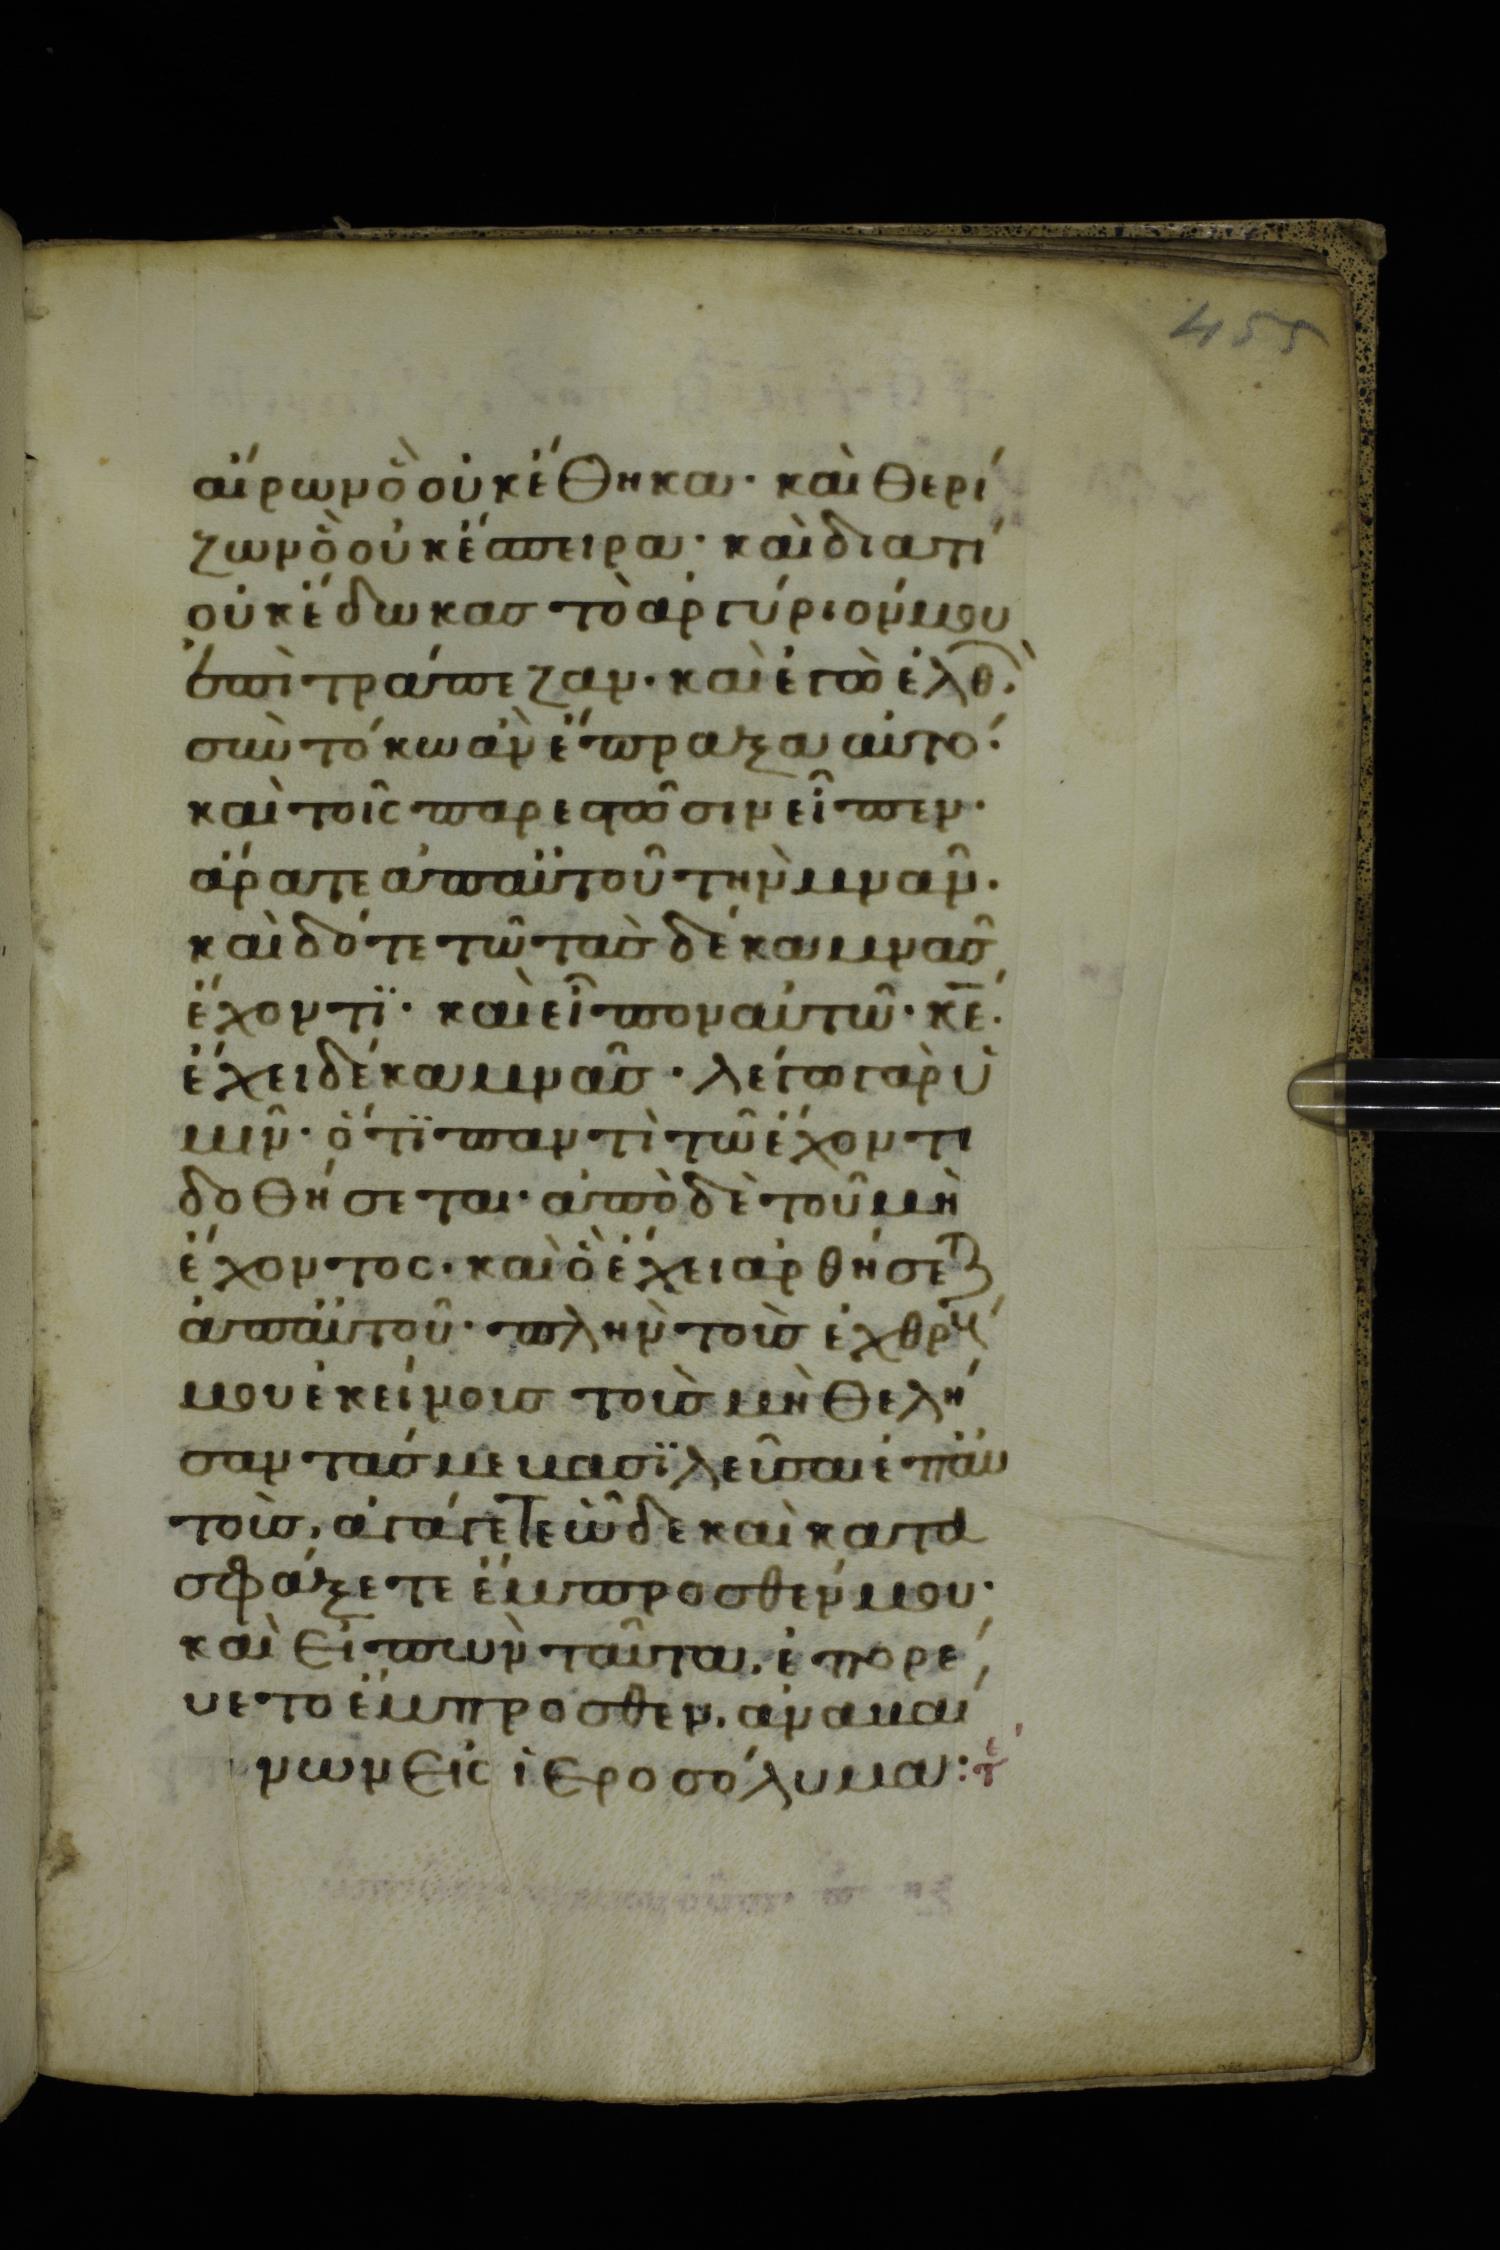 455
αἴρων ὃ οὐκ ἔθηκα· καὶ θερί
ζων ὃ οὐκ ἔσπειρα· καὶ διατί
οὐκ ἔδωκας τὸ ἀργύριόν μου
ἐπὶ τράπεζαν· καὶ ἐγὼ ἐλθὼ
σὺν τόκω ἂν ἔπραξα αὐτό·
καὶ τοῖς παρεστῶσιν εἶπεν·
ἄρατε ἀπ αὐτοῦ τὴν μνᾶν·
καὶ δότε τῶ τὰς δέκα μνᾶς
ἔχοντϊ· καὶ εἶπον αὐτῶ· κε̅·
ἔχει δέκα μνᾶς· λέγω γὰρ ὑ
μῖν· ὅτϊ παντὶ τῶ ἔχοντι
δοθήσεται· ἀπὸ δὲ τοῦ μὴ
ἔχοντος· καὶ ὃ ἔχει ἀρθήσετ
ἀπ αὐτοῦ· πλὴν τοὺς ἐχθρούς
μου ἐκείνους τοὺς μὴ θελή
σαντάς με βασϊλεῦσαι ἐπ αὐ
τοὺς, ἀγάγετε ὧδε καὶ κατα
σφάξετε ἔμπροσθέν μου·
καὶ εἰπὼν ταῦτα, ἐπορε
ύετο ἔμπροσθεν, ἀναβαί
νων εἰς ἱεροσόλυμα: τε